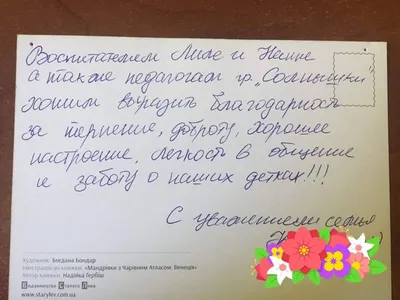 Воспитателям Лиле и Нанне
а также педагогам гр. „Солнышки"
хотим выразить благодарность
за терпение, доброту, хорошее
настроение, легкость в общение
и заботу о наших детках!!!
С уважением семья
Художник: Богдана Бондар
Ілюстрація из книжки: «Мандрівки з Чарівним Атласом. Венеція»
Автор книжки: Надійка Гербіш
Видавництво Старого Лева
www.starylev.com.ua